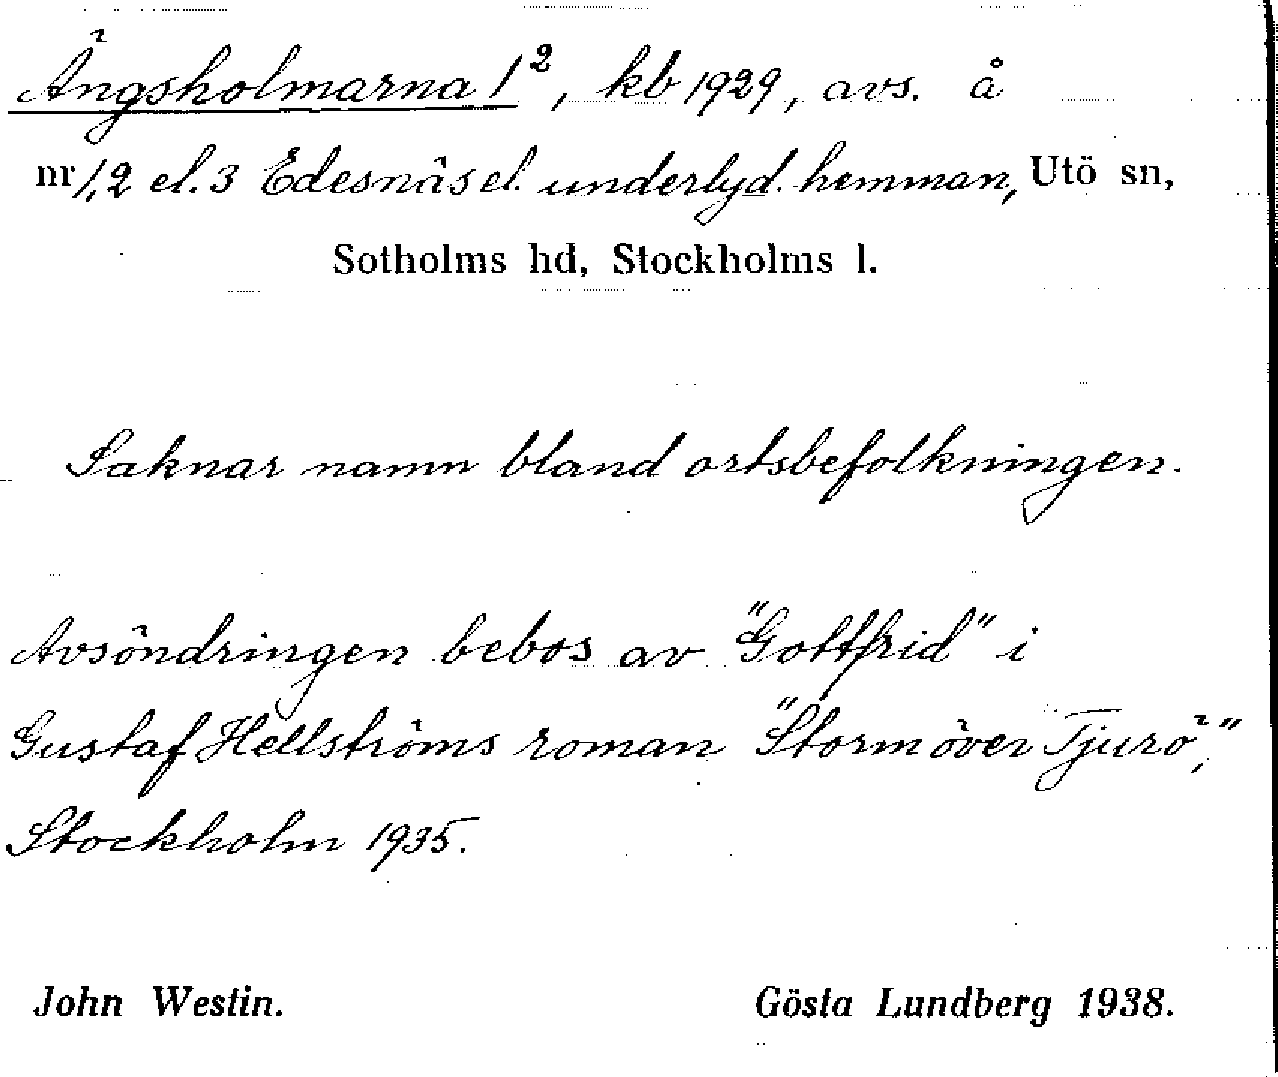 Ängsholmarna 1², kb 1929, avs. å
nr 1, 2 el. 3 Edesnäs el. underlyd. hemman, Utö sn,
Sotholms hd, Stockholms l.
Saknar namn bland ortsbefolkningen.
Avsöndringen bebos av "Gottfrid" i
Gustaf Hellströms roman "Storm över Tjurö",
Stockholm 1935.
John Westin. Gösta Lundberg 1938.